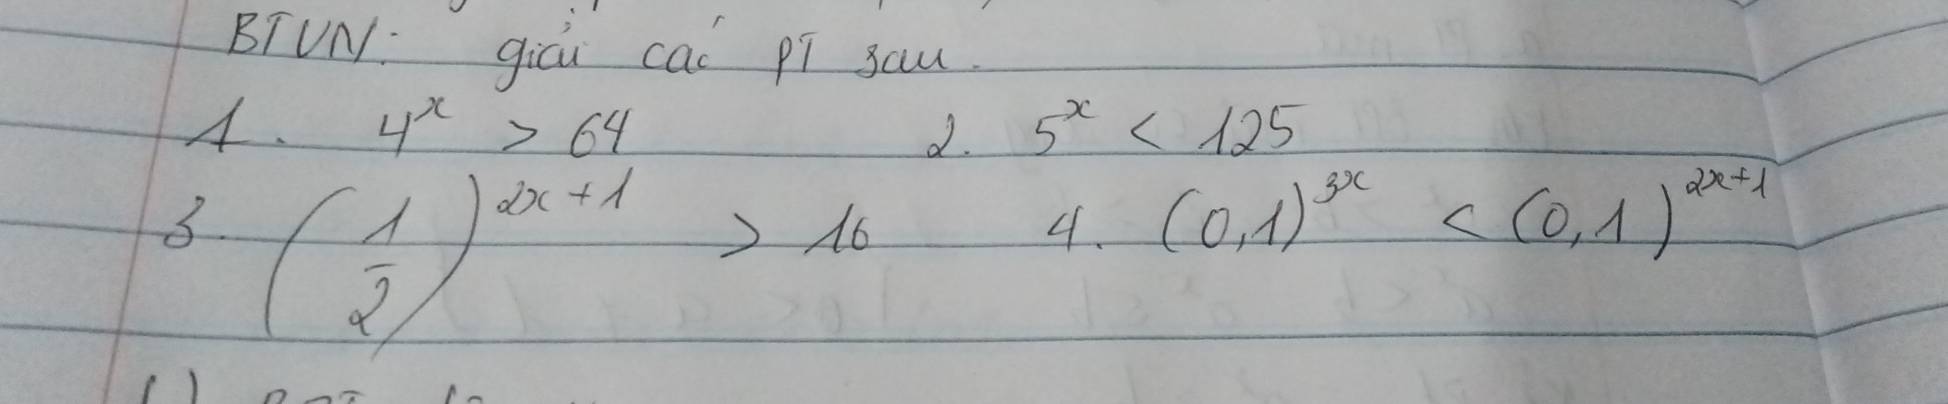 BTVN: giải các PT sau.
1. 4^x > 64 2. 5^x < 125
3. (1/2)^{2x+1} > 16 4. (0,1)^{3x} < (0,1)^{2x+1}